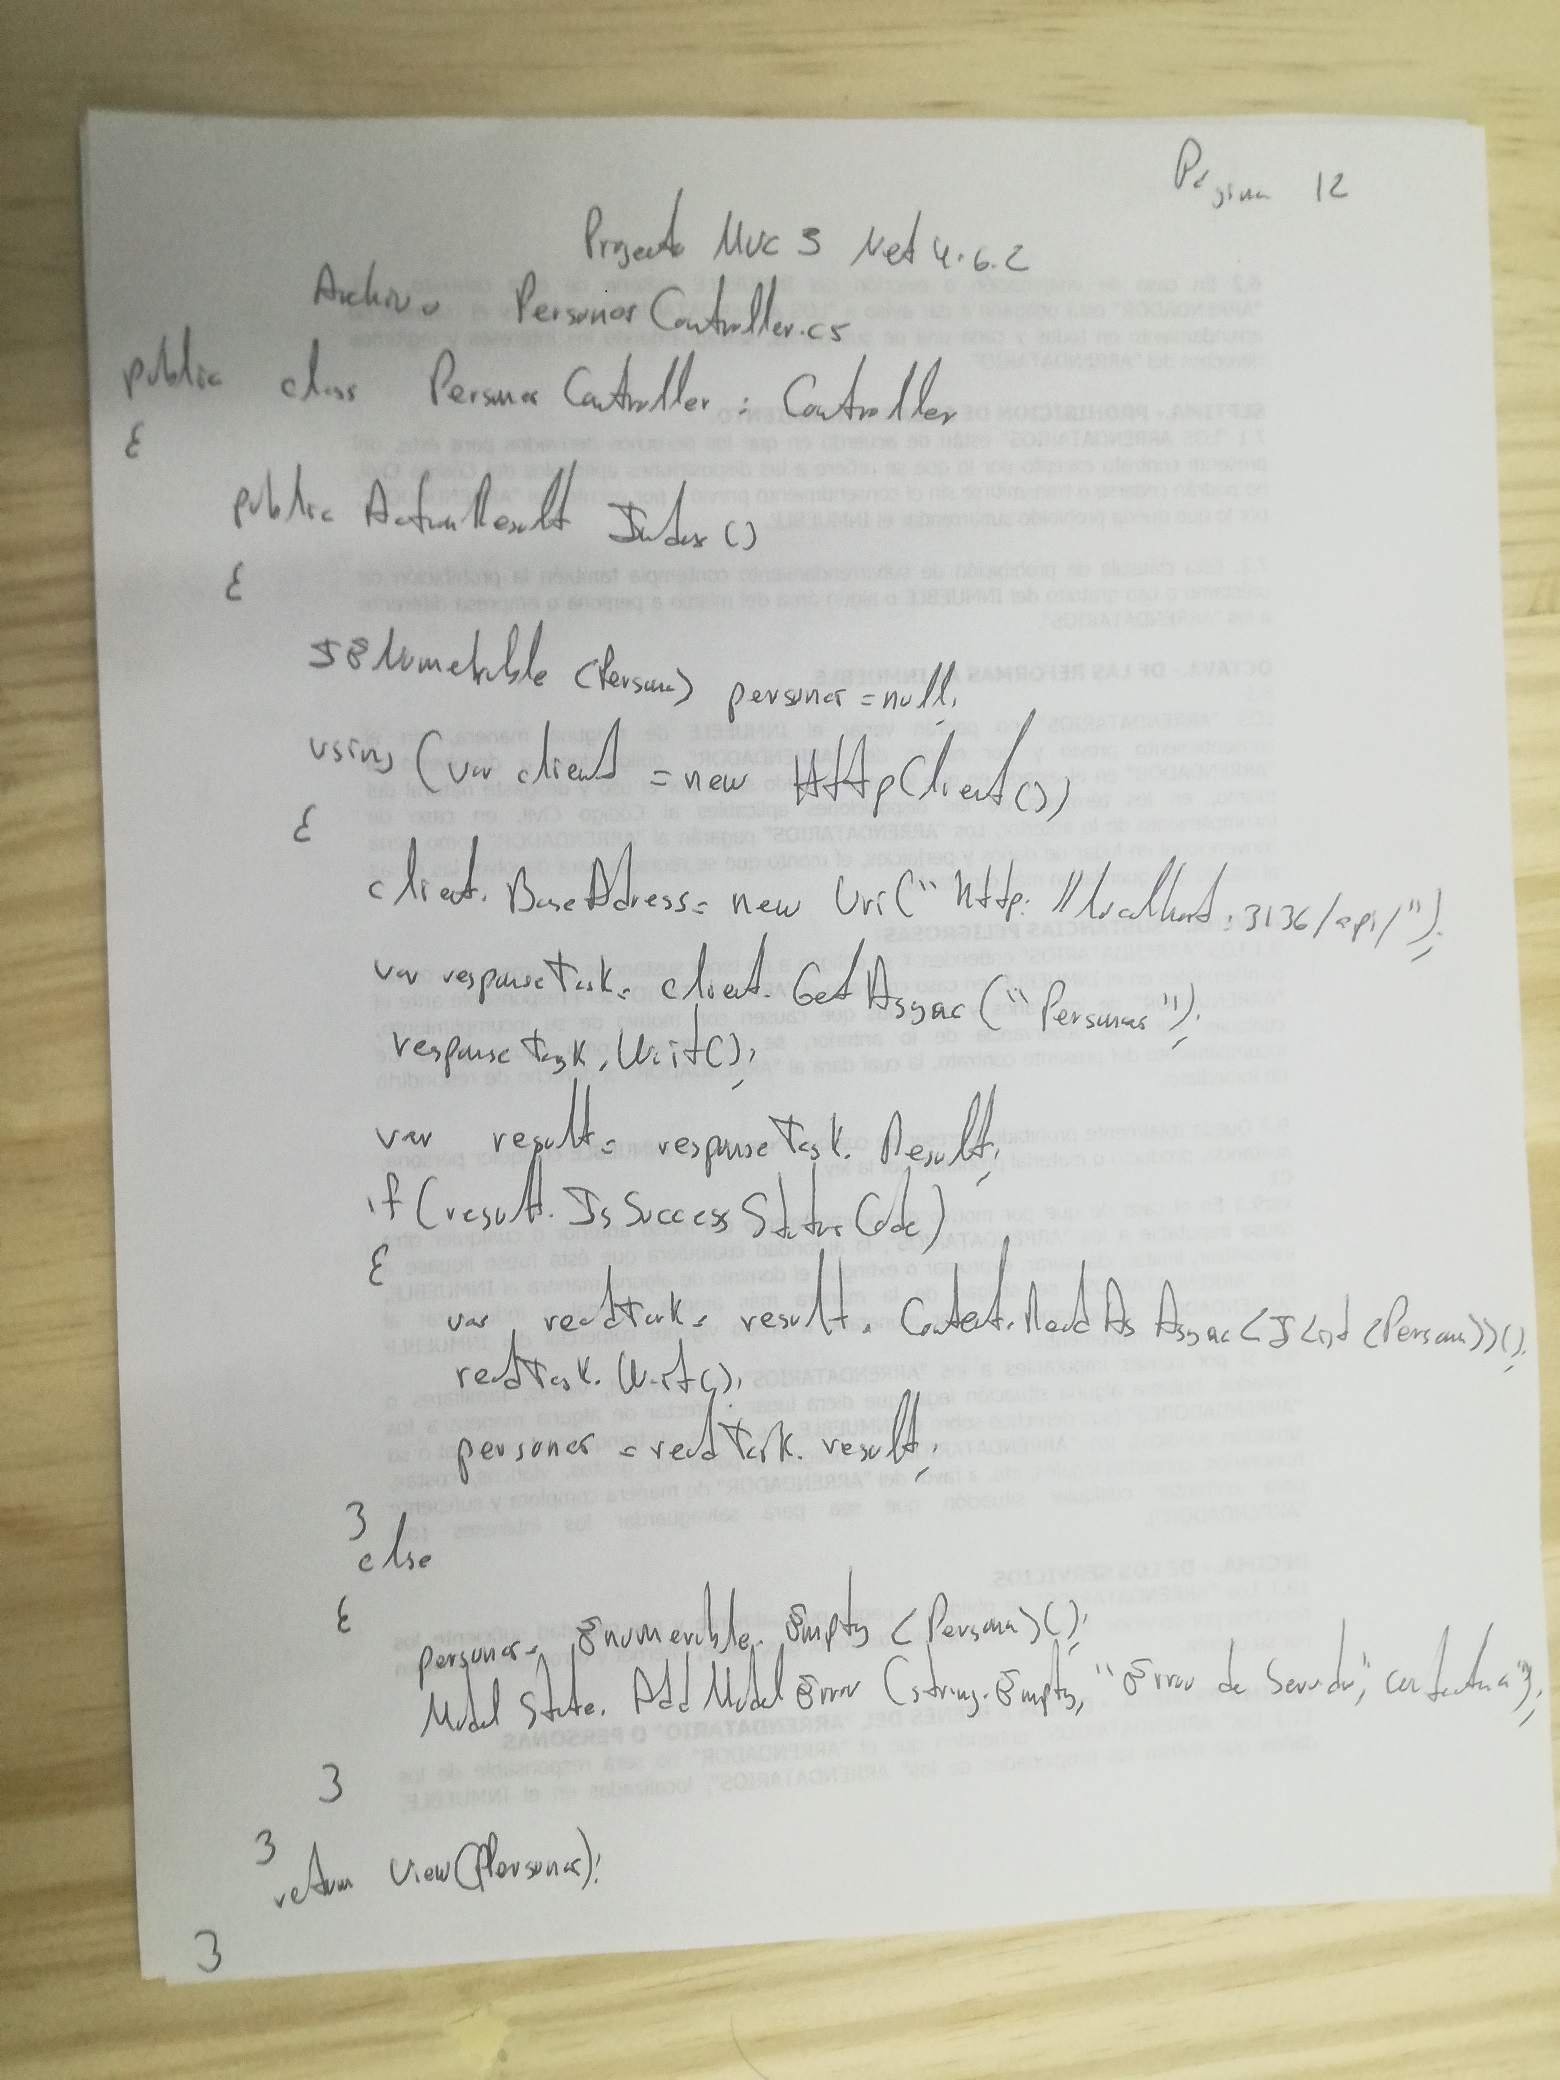 Página 12
Proyecto MVC 5 Net 4.6.2
Archivo PersonasController.cs
public class PersonasController : Controller
{
public ActionResult Index()
{
IENumerable <Persona> personas = null;
using (var client = new HttpClient())
{
client.BaseAdress = new Uri("http://localhost:3136/api/");
var responseTask = client.GetAsync("Personas");
responseTask.Wait();
var result = responseTask.Result;
if (result.IsSuccessStatusCode)
{
var readTask = result.Content.ReadAsAsync<IList<Persona>>();
readTask.Wait();
personas = readTask.result;
}
else
{
personas = Enumerable.Empty <Persona>();
ModelState.AddModelError (string.Empty, "Error de Servidor,
}
}
return View(Personas);
}